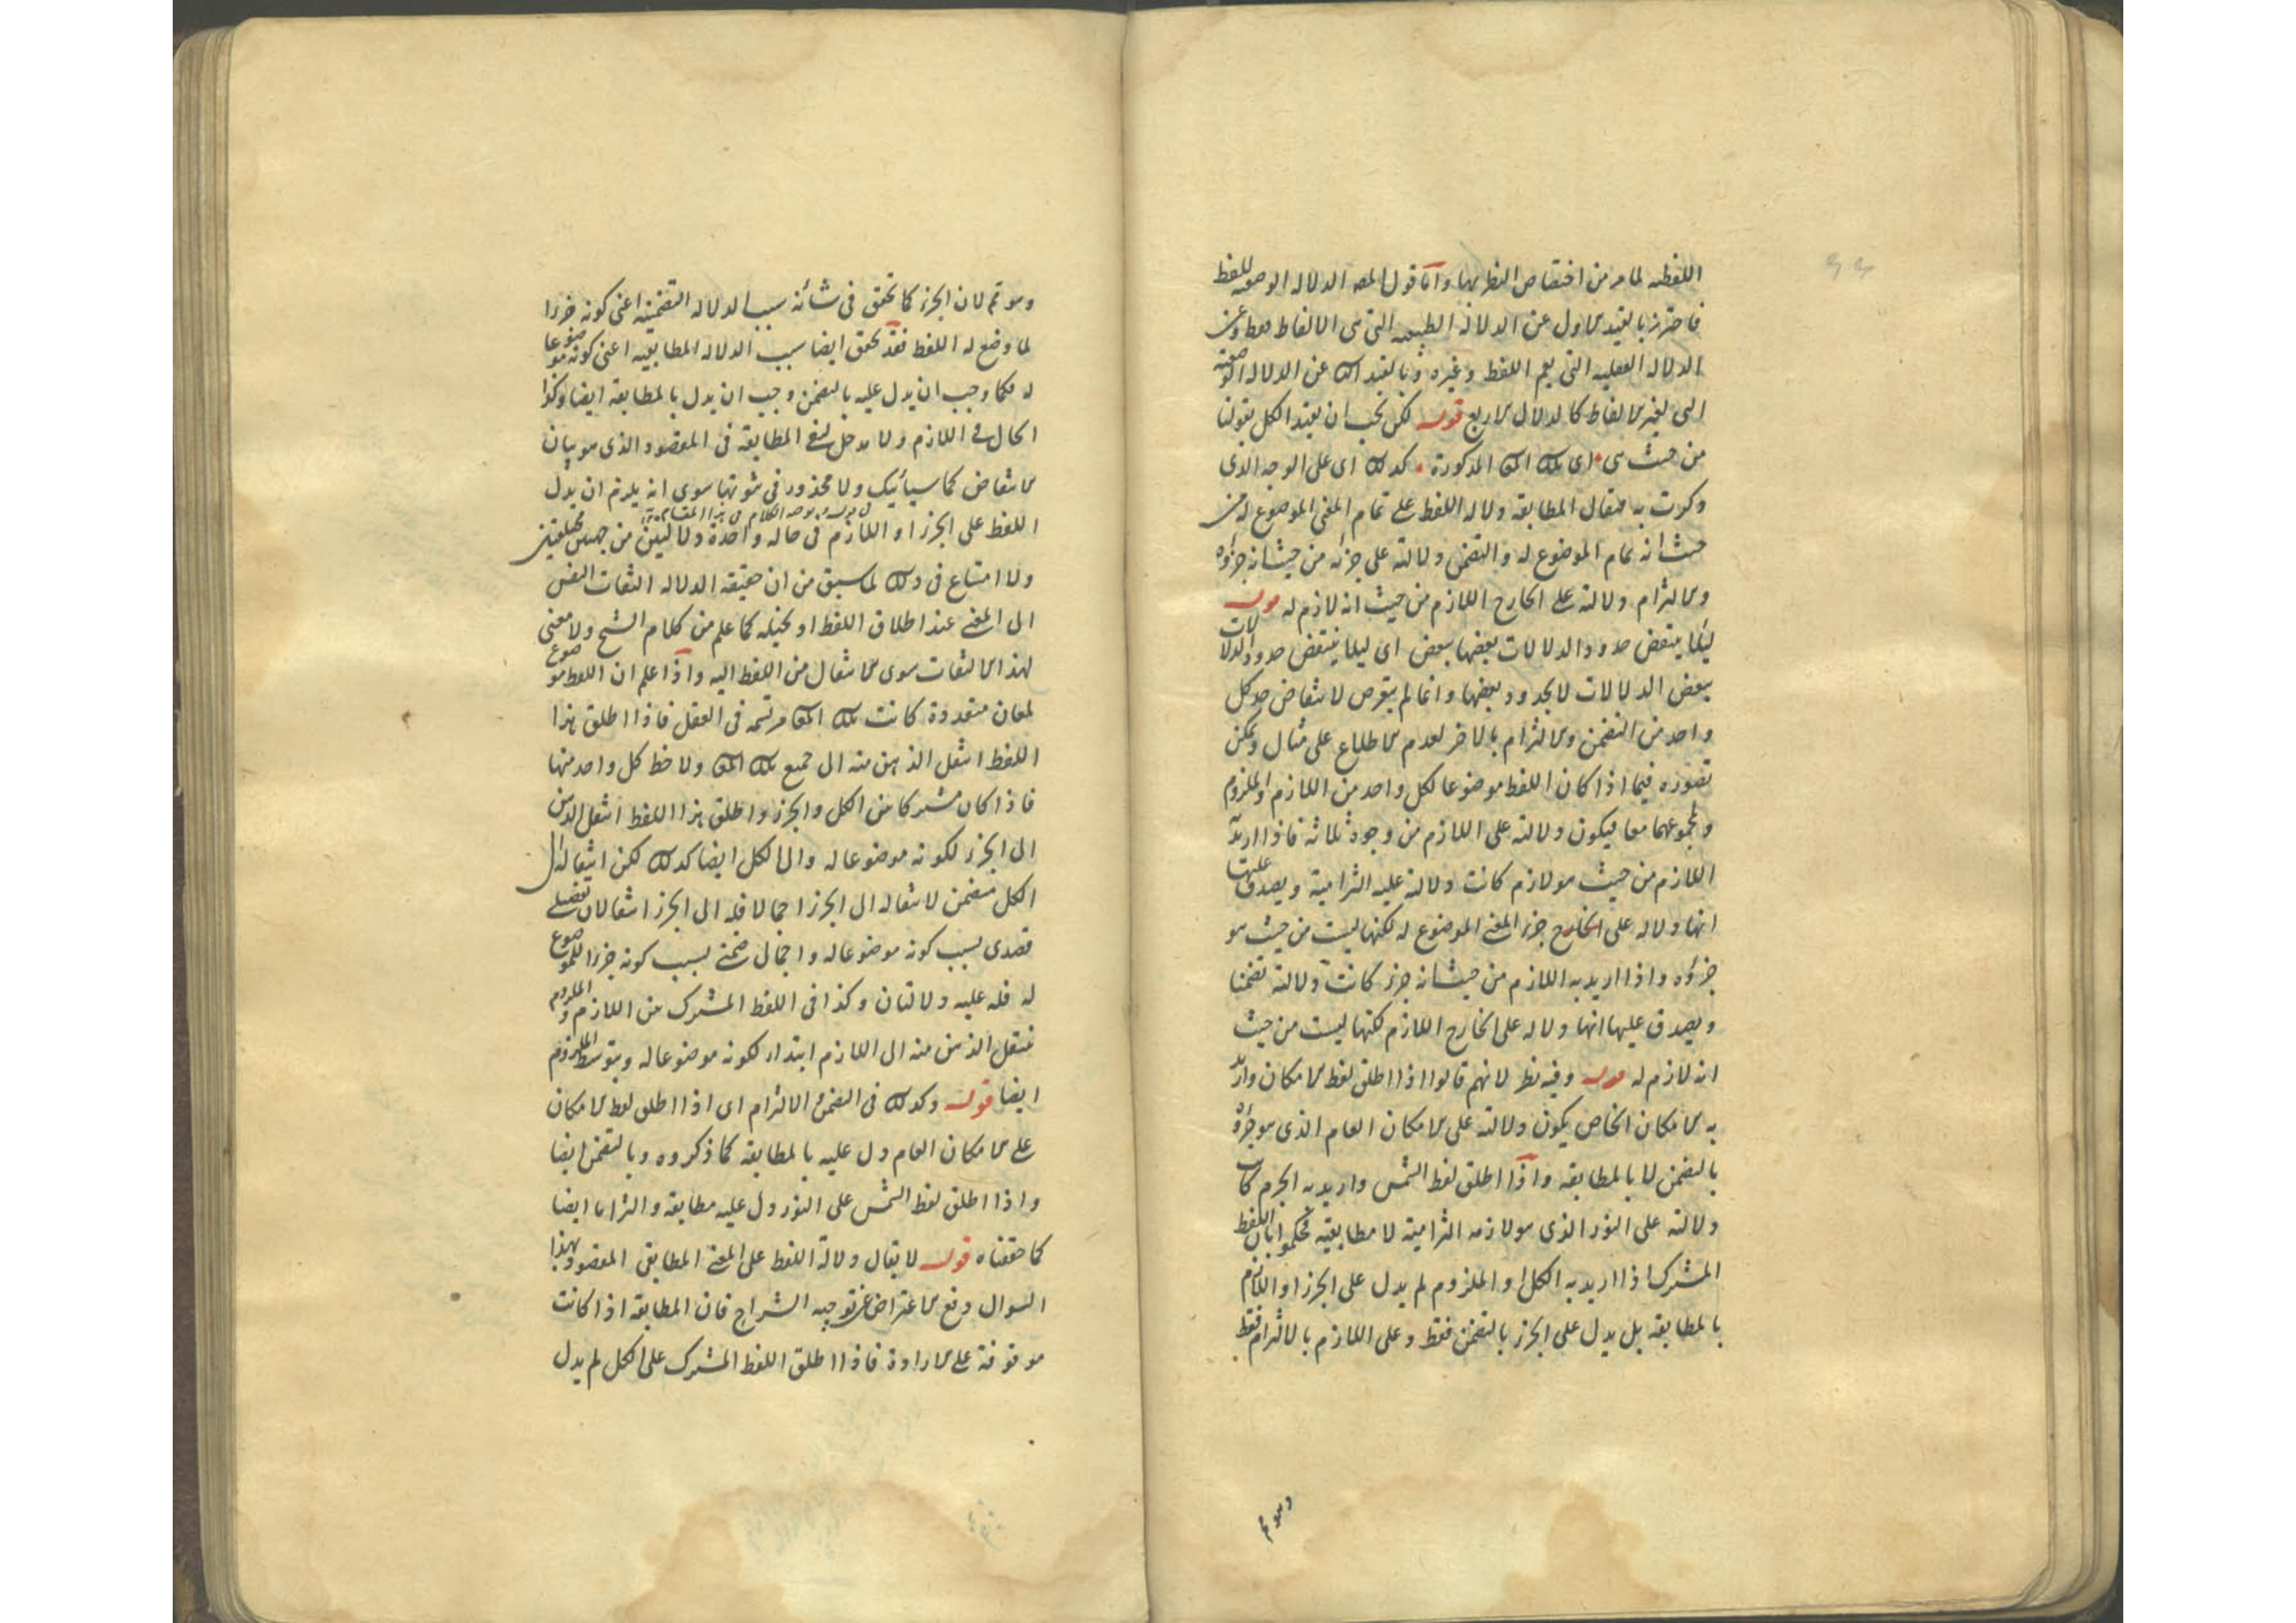 اللفظيه لما مر من اختصاص النظر بها واما قول المصه الدلاله الوضعيه للفظ
فاحترز بالقيد الاول عن الدلالة الطبيعيه التى هى الالفاظ فقط وعن
الدلاله العقليه التى يعم اللفظ وغيره وبالقيد الثا عن الدلاله الوضعيه
التى لغير الالفاظ كالدلال الاربع قوله لكن يجب ان يقيد الكل بقولنا
من حيث هى اى تلك المعا المذكورة كذلك اى على الوجه الذى
ذكرت به فيقال المطابقة دلاله اللفظ على تمام المعنى الموضوع له من
حيث انه تمام الموضوع له والتضمن دلالته على جزئه من حيث انه جزؤه
والالتزام دلالته على الخارج اللازم من حيث انه لازم له قوله
ليلا ينتقض حدود الدلالات بعضها ببعض اى ليلا ينتقض حدود الدلالات
ببعض الدلالات لا بحدود بعضها وانما لم يتعرض لانتقاض حد كل
واحد من التضمن والالتزام بالاخر لعدم الاطلاع على مثال ويمكن
تصوره فيما اذا كان اللفظ موضوعا لكل واحد من اللازم والملزوم
ولمجموعهما معا فيكون دلالته على اللازم من وجوه ثلاثة فاذا اريد به
اللازم من حيث هو لازم كانت دلالته عليه التزامية ويصدق عليها
انها دلاله على الخارج جزء المعنى الموضوع له لكنها ليست من حيث هو
جزؤه واذا اريد به اللازم من حيث انه جزء كانت دلالته تضمنا
ويصدق عليها انها دلاله على الخارج اللازم لكنها ليست من حيث
انه لازم له قوله وفيه نظر لانهم قالوا اذا اطلق لفظ الامكان واريد
به الامكان الخاص يكون دلالته على الامكان العام الذى هو جزؤه
بالتضمن لا بالمطابقه واذا اطلق لفظ الشمس واريد به الجرم كانت
دلالته على النور الذى هو لازمه التزامية لا مطابقيه فحكموا بان اللفظ
المشترك اذا اريد به الكل او الملزوم لم يدل على الجزء او اللازم
بالمطابقه بل يدل على الجزء بالتضمن فقط وعلى اللازم بالالتزام فقط
وهو ثم
وهو ثم لان الجزء كما تحقق فى شأنه سبب الدلاله التضمنيه اعنى كونه جزءا
لما وضع له اللفظ فقد تحقق ايضا سبب الدلاله المطابقيه اعنى كونه موضوعا
له فكما وجب ان يدل عليه بالتضمن وجب ان يدل بالمطابقة ايضا وكذا
الحال فى اللازم ولا مدخل لنفى المطابقه فى المقصود الذى هو بيان
الانتقاض كما سيأتيك ولا محذور فى ثبوتها سوى انه يلزم ان يدل
اللفظ على الجزء او اللازم فى حاله واحدة دلالتين من جهتين مختلفتين
ولا امتناع فى ذلك لما سبق من ان حقيقه الدلاله التفات النفس
الى المعنى عند اطلاق اللفظ او تخيله كما علم من كلام الشيخ ولا معنى
لهذا الالتفات سوى الانتقال من اللفظ اليه واذا علم ان اللفظ موضوع
لمعان متعددة كانت تلك المعا مرتسمه فى العقل فاذا اطلق هذا
اللفظ انتقل الذهن منه الى جميع تلك المعا ولاحظ كل واحد منها
فاذا كان مشتركا بين الكل والجزء واطلق هذا اللفظ انتقل الذهن
الى الجزء لكونه موضوعا له والى الكل ايضا كذلك لكن انتقاله الى
الكل متضمن لانتقاله الى الجزء اجمالا فله الى الجزء انتقالان تفصيلى
قصدى بسبب كونه موضوعا له واجمالى ضمنى بسبب كونه جزءا للموضوع
له فله عليه دلالتان وكذا فى اللفظ المشترك بين اللازم والملزوم
ينتقل الذهن منه الى اللازم ابتداء لكونه موضوعا له وبتوسط الملزوم
ايضا قوله وكذلك فى التضمن والالتزام اى اذا اطلق لفظ الامكان
على الامكان العام دل عليه بالمطابقه كما ذكروه وبالتضمن ايضا
واذا اطلق لفظ الشمس على النور دل عليه مطابقه والتزاما ايضا
كما حققناه قوله لا يقال دلالة اللفظ على المعنى المطابقى المقصود بهذا
السوال دفع الاعتراض عن توجيه الشراح فان المطابقه اذا كانت
موقوفة على الارادة فاذا اطلق اللفظ المشترك على الكل لم يدل